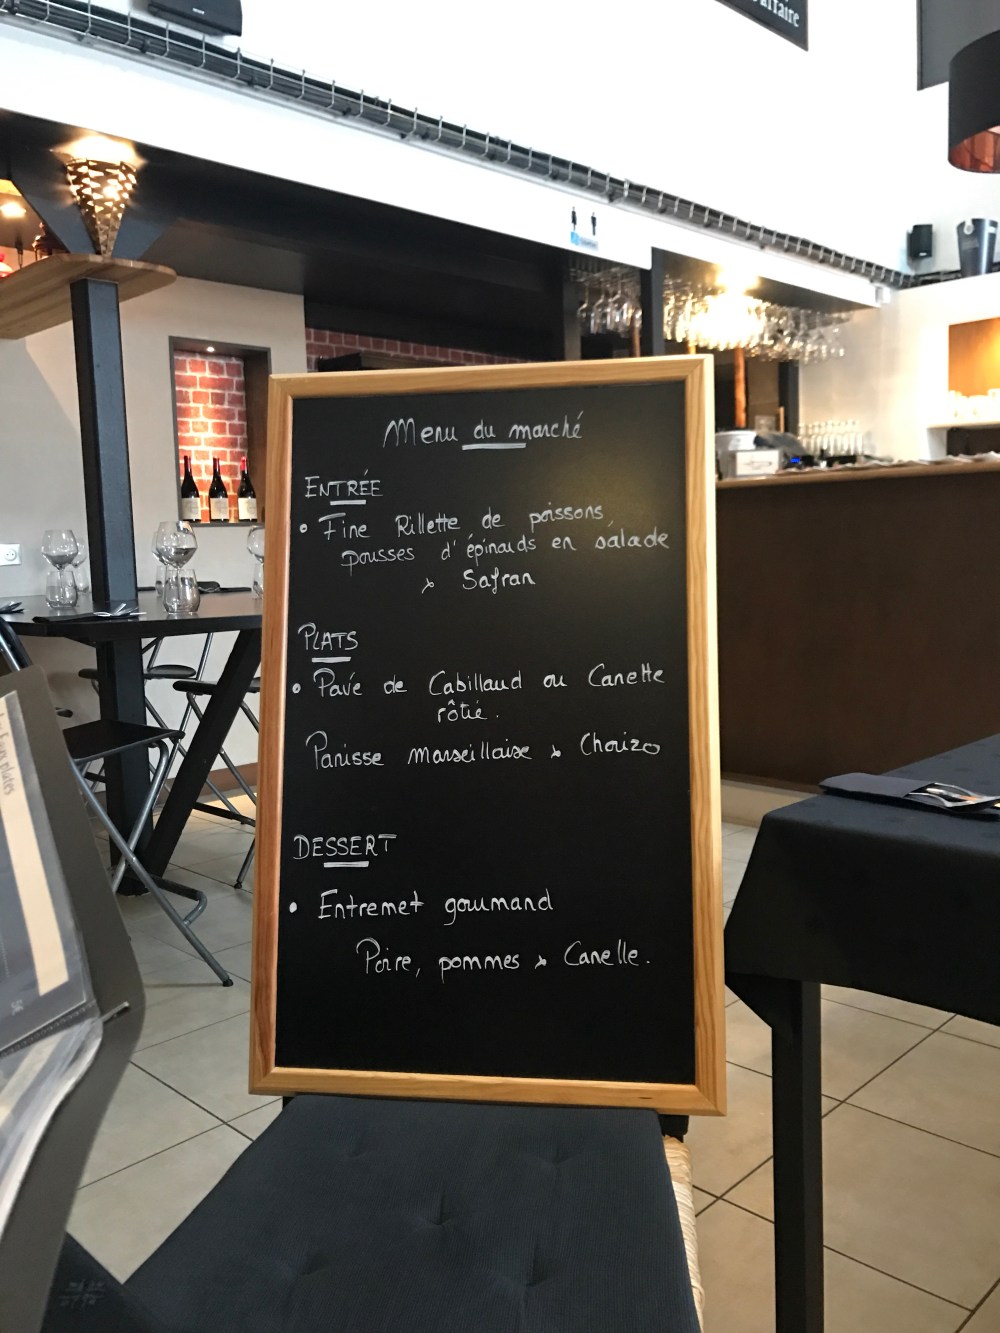 Menu du marché
ENTRÉE
• Fine Rillette de poissons
pousses d'épinards en salade
& Safran
PLATS
• Pavé de Cabillaud ou Canette
rôtie.
Panisse Marseillaise & Chorizo
DESSERT
• Entremet gourmand
Poire, pommes & Canelle.